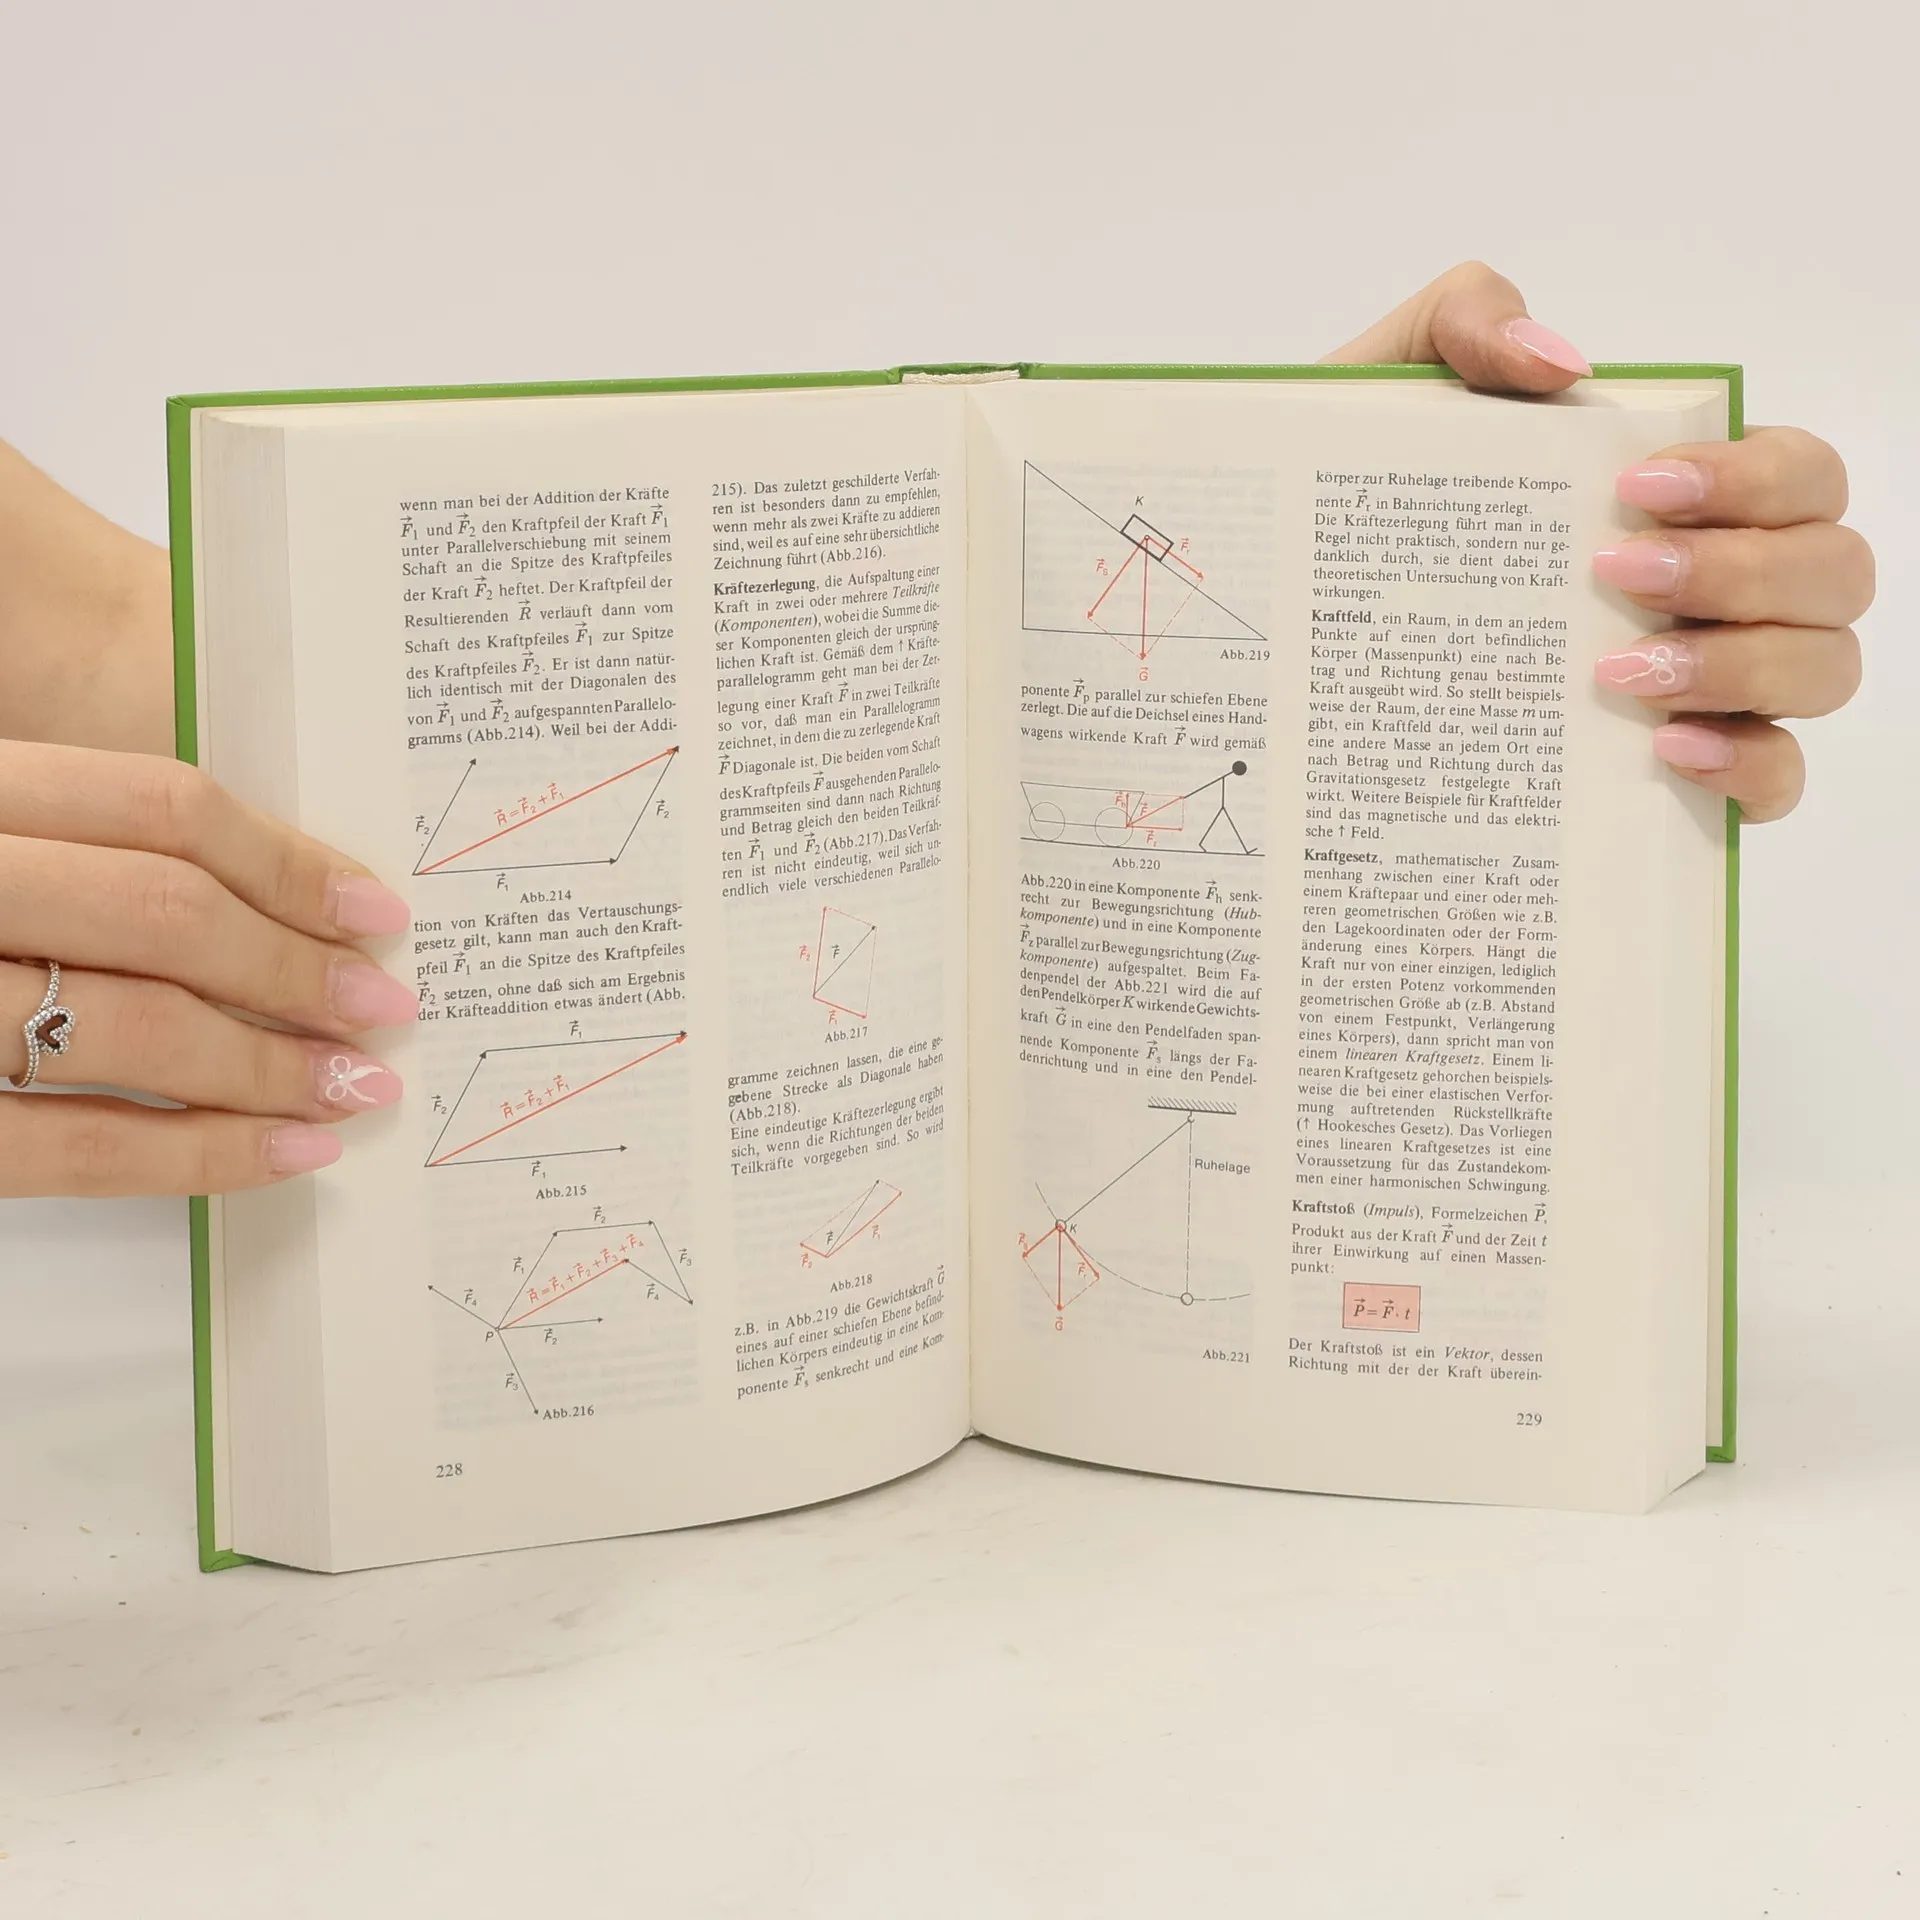 wenn man bei der Addition der Kräfte
F⃗₁ und F⃗₂ den Kraftpfeil der Kraft F⃗₁
unter Parallelverschiebung mit seinem
Schaft an die Spitze des Kraftpfeiles
der Kraft F⃗₂ heftet. Der Kraftpfeil der
Resultierenden R⃗ verläuft dann vom
Schaft des Kraftpfeiles F⃗₁ zur Spitze
des Kraftpfeiles F⃗₂. Er ist dann natür-
lich identisch mit der Diagonalen des
von F⃗₁ und F⃗₂ aufgespannten Parallelo-
gramms (Abb.214). Weil bei der Addi-
F⃗₂
R⃗=F⃗₂+F⃗₁
F⃗₂
F⃗₁
Abb.214
tion von Kräften das Vertauschungs-
gesetz gilt, kann man auch den Kraft-
pfeil F⃗₁ an die Spitze des Kraftpfeiles
F⃗₂ setzen, ohne daß sich am Ergebnis
der Kräfteaddition etwas ändert (Abb.
F⃗₁
F⃗₂
R⃗=F⃗₂+F⃗₁
F⃗₁
Abb.215
F⃗₂
F⃗₁
R⃗=F⃗₁+F⃗₂+F⃗₃+F⃗₄
F⃗₃
F⃗₄
F⃗₄
P
F⃗₂
F⃗₃
Abb.216
228
215). Das zuletzt geschilderte Verfah-
ren ist besonders dann zu empfehlen,
wenn mehr als zwei Kräfte zu addieren
sind, weil es auf eine sehr übersichtliche
Zeichnung führt (Abb.216).
Kräftezerlegung, die Aufspaltung einer
Kraft in zwei oder mehrere Teilkräfte
(Komponenten), wobei die Summe die-
ser Komponenten gleich der ursprüng-
lichen Kraft ist. Gemäß dem ↑ Kräfte-
parallelogramm geht man bei der Zer-
legung einer Kraft F⃗ in zwei Teilkräfte
so vor, daß man ein Parallelogramm
zeichnet, in dem die zu zerlegende Kraft
F⃗ Diagonale ist. Die beiden vom Schaft
des Kraftpfeils F⃗ ausgehenden Parallelo-
grammseiten sind dann nach Richtung
und Betrag gleich den beiden Teilkräf-
ten F⃗₁ und F⃗₂ (Abb.217). Das Verfah-
ren ist nicht eindeutig, weil sich un-
endlich viele verschiedenen Parallelo-
F⃗₂
F⃗
F⃗₁
Abb.217
gramme zeichnen lassen, die eine ge-
gebene Strecke als Diagonale haben
(Abb.218).
Eine eindeutige Kräftezerlegung ergibt
sich, wenn die Richtungen der beiden
Teilkräfte vorgegeben sind. So wird
F⃗
F⃗₂
F⃗₁
Abb.218
z.B. in Abb.219 die Gewichtskraft G⃗
eines auf einer schiefen Ebene befind-
lichen Körpers eindeutig in eine Kom-
ponente F⃗ₛ senkrecht und eine Kom-
K
F⃗
F⃗
G⃗
Abb.219
ponente F⃗ₚ parallel zur schiefen Ebene
zerlegt. Die auf die Deichsel eines Hand-
wagens wirkende Kraft F⃗ wird gemäß
F⃗ₕ
F⃗
F⃗
Abb.220
Abb.220 in eine Komponente F⃗ₕ senk-
recht zur Bewegungsrichtung (Hub-
komponente) und in eine Komponente
F⃗z parallel zur Bewegungsrichtung (Zug-
komponente) aufgespaltet. Beim Fa-
denpendel der Abb.221 wird die auf
den Pendelkörper K wirkende Gewichts-
kraft G⃗ in eine den Pendelfaden span-
nende Komponente F⃗ₛ längs der Fa-
denrichtung und in eine den Pendel-
Ruhelage
K
F⃗
F⃗
G⃗
Abb.221
körper zur Ruhelage treibende Kompo-
nente F⃗ᵣ in Bahnrichtung zerlegt.
Die Kräftezerlegung führt man in der
Regel nicht praktisch, sondern nur ge-
danklich durch, sie dient dabei zur
theoretischen Untersuchung von Kraft-
wirkungen.
Kraftfeld, ein Raum, in dem an jedem
Punkte auf einen dort befindlichen
Körper (Massenpunkt) eine nach Be-
trag und Richtung genau bestimmte
Kraft ausgeübt wird. So stellt beispiels-
weise der Raum, der eine Masse m um-
gibt, ein Kraftfeld dar, weil darin auf
eine andere Masse an jedem Ort eine
nach Betrag und Richtung durch das
Gravitationsgesetz festgelegte Kraft
wirkt. Weitere Beispiele für Kraftfelder
sind das magnetische und das elektri-
sche ↑ Feld.
Kraftgesetz, mathematischer Zusam-
menhang zwischen einer Kraft oder
einem Kräftepaar und einer oder meh-
reren geometrischen Größen wie z.B.
den Lagekoordinaten oder der Form-
änderung eines Körpers. Hängt die
Kraft nur von einer einzigen, lediglich
in der ersten Potenz vorkommenden
geometrischen Größe ab (z.B. Abstand
von einem Festpunkt, Verlängerung
eines Körpers), dann spricht man von
einem linearen Kraftgesetz. Einem li-
nearen Kraftgesetz gehorchen beispiels-
weise die bei einer elastischen Verfor-
mung auftretenden Rückstellkräfte
(↑ Hookesches Gesetz). Das Vorliegen
eines linearen Kraftgesetzes ist eine
Voraussetzung für das Zustandekom-
men einer harmonischen Schwingung.
Kraftstoß (Impuls), Formelzeichen P⃗,
Produkt aus der Kraft F⃗ und der Zeit t
ihrer Einwirkung auf einen Massen-
punkt:
P⃗ = F⃗ · t
Der Kraftstoß ist ein Vektor, dessen
Richtung mit der der Kraft überein-
229